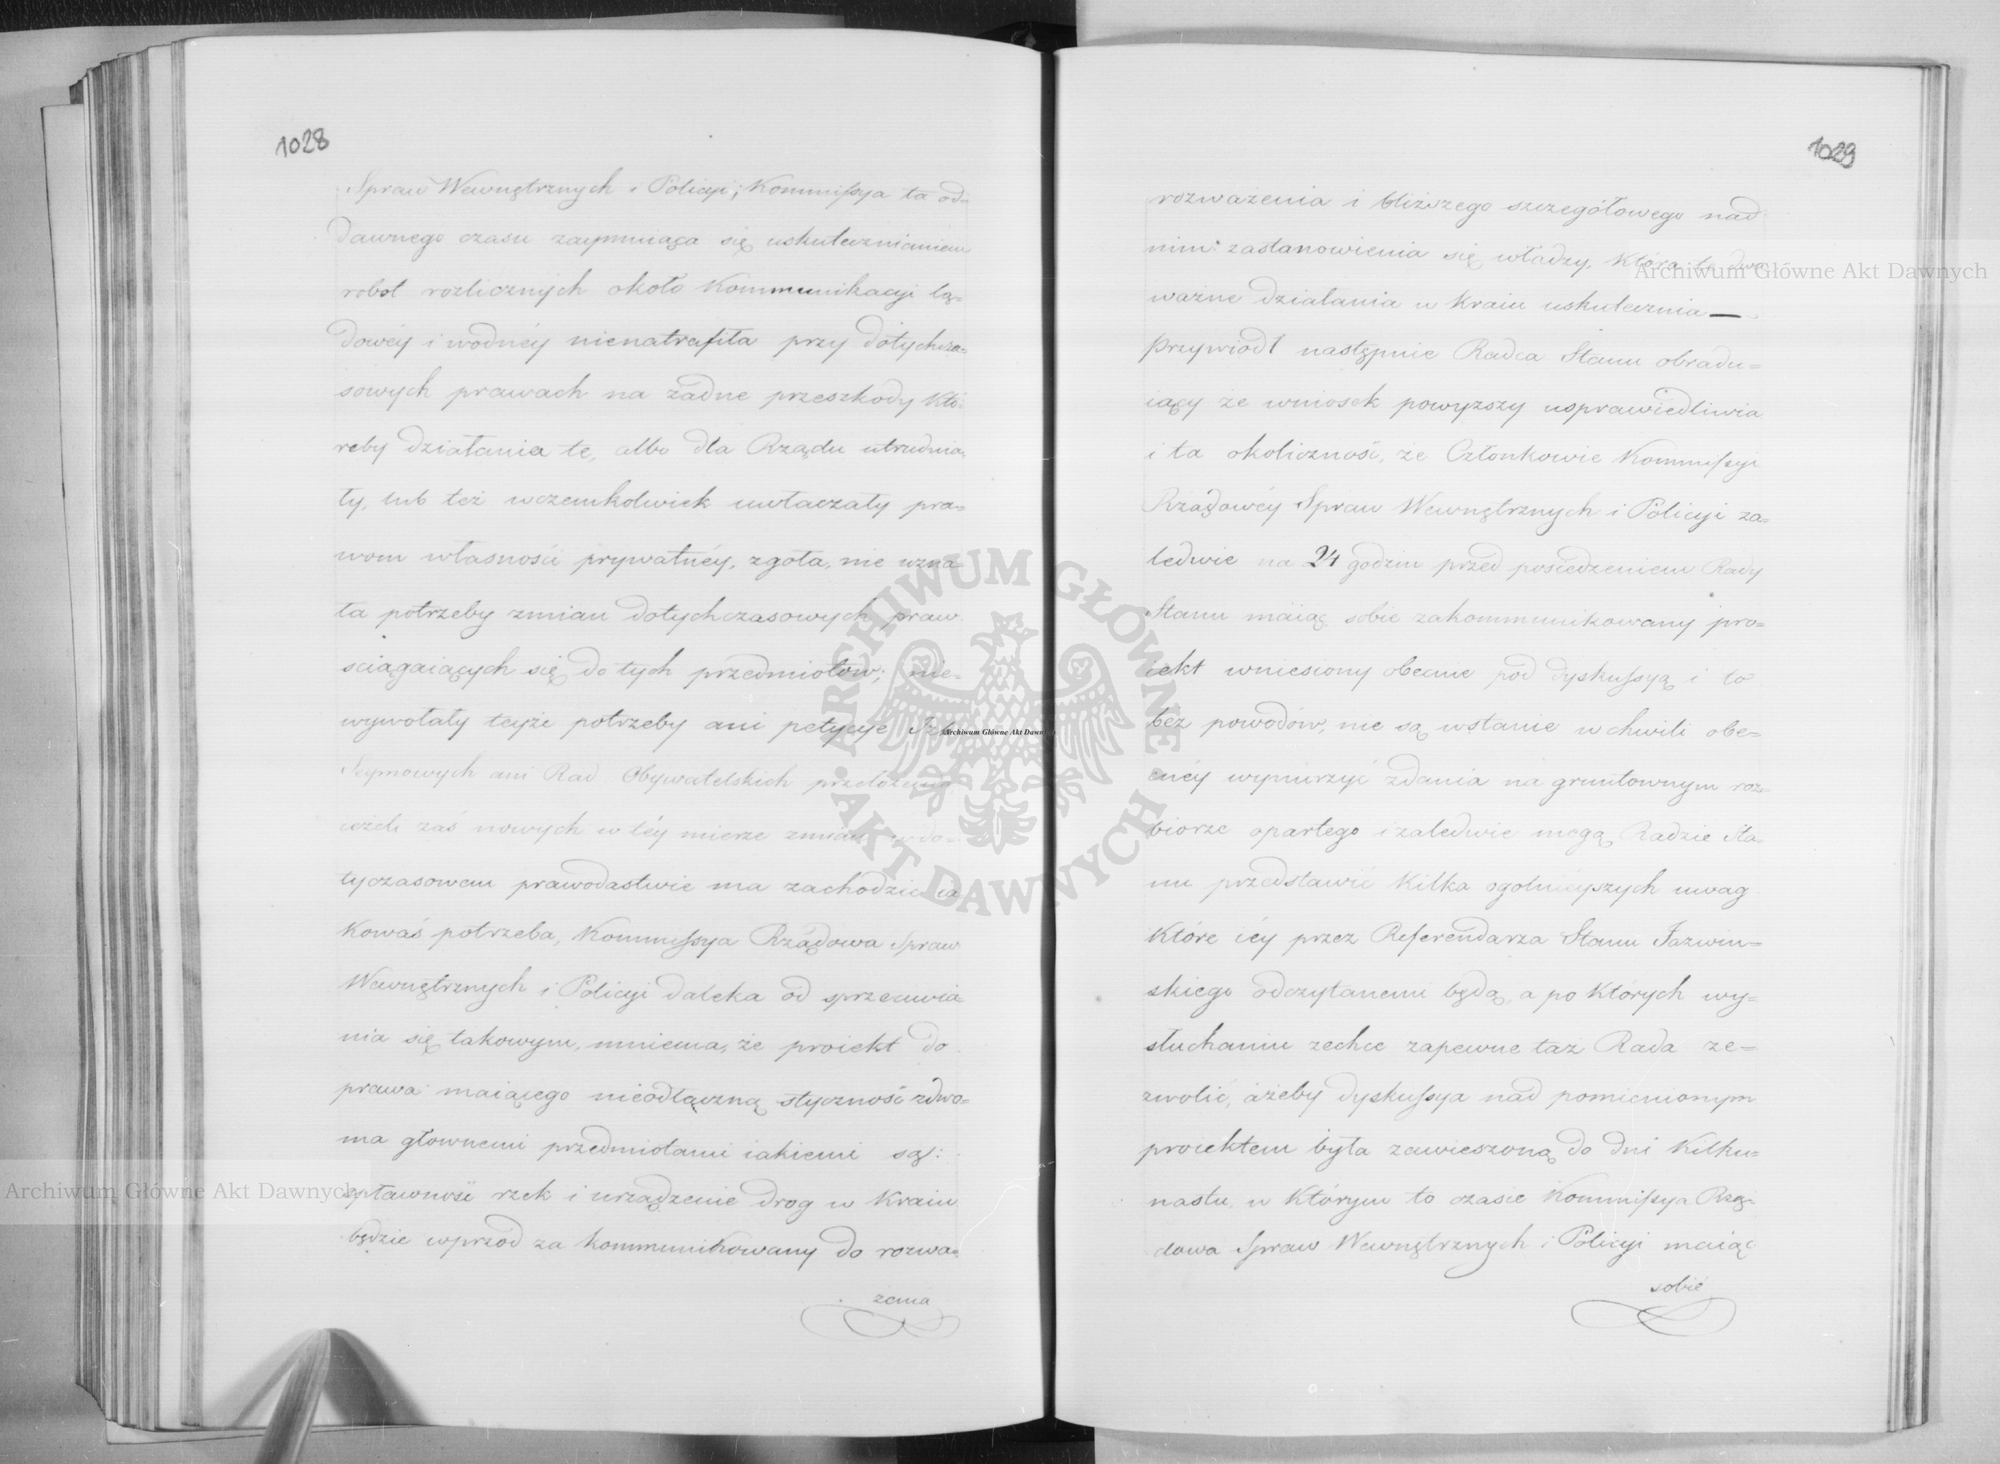 1028
Spraw Wewnętrznych i Policyi; Kommissya ta od=
dawnego czasu zaymuiąca się uskutecznianiem
robot rozlicznych około Kommunikacyi lą=
dowéy i wodnéy nienatrafiła przy dotychcza=
sowych prawach na żadne przeszkody któ=
reby działania te, albo dla Rządu utrudnia=
ły, lub też wczemkolwiek uwłaczały pra=
wom własności prywatnéy, zgoła, nie uzna=
ła potrzeby zmian dotychczasowych praw
ściągaiących się do tych przedmiotów; nie=
wywołały teyże potrzeby ani petycye Izb
Seymowych ani Rad Obywatelskich przełożenia
ieżeli zaś nowych w téy mierze zmian w do=
tyczasowem prawodastwie ma zachodzić ia
kowaś potrzeba, Kommissya Rządowa Spraw
Wewnętrznych i Policyi daleka od sprzeciwia
nia się takowym, mniema, że proiekt do
prawa maiącego nieodłączną styczność zdwo=
ma głownemi przedmiotami iakiemi są:
spławność rzek i urządzenie drog w Kraiu
będzie wprzód za kommunikowany do rozwa=
żenia
1029
rozważenia i bliższego szczegółowego nad
nim zastanowienia się władzy, która te dwa
ważne działania w Kraiu uskutecznia —
Przywiódł następnie Radca Stanu obradu=
iący że wniosek powyższy usprawiedliwia
i ta okoliczność, że Członkowie Kommissyi
Rządowéy Spraw Wewnętrznych i Policyi za=
ledwie na 24 godzin przed posiedzeniem Rady
Stanu maiąc sobie zakommunikowany pro=
iekt wniesiony obecnie pod dyskussyą i to
bez powodów, nie są wstanie w chwili obe=
cnéy wynurzyć zdania na gruntownym roz=
biorze opartego i zaledwie mogą Radzie Sta=
nu przedstawić kilka ogolnieyszych uwag
które iéy przez Referendarza Stanu Jazwin=
skiego odczytanemi będą, a po których wy=
słuchaniu zechce zapewne taż Rada ze=
zwolić, ażeby dyskussya nad pomienionym
proiektem była zawieszoną do dni kilku=
nastu, w którym to czasie Kommissya Rzą=
dowa Spraw Wewnętrznych i Policyi maiąc
sobie
Archiwum Główne Akt Dawnych
Archiwum Główne Akt Dawnych
Archiwum Główne Akt Dawnych
ARCHIWUM GŁÓWNE AKT DAWNYCH